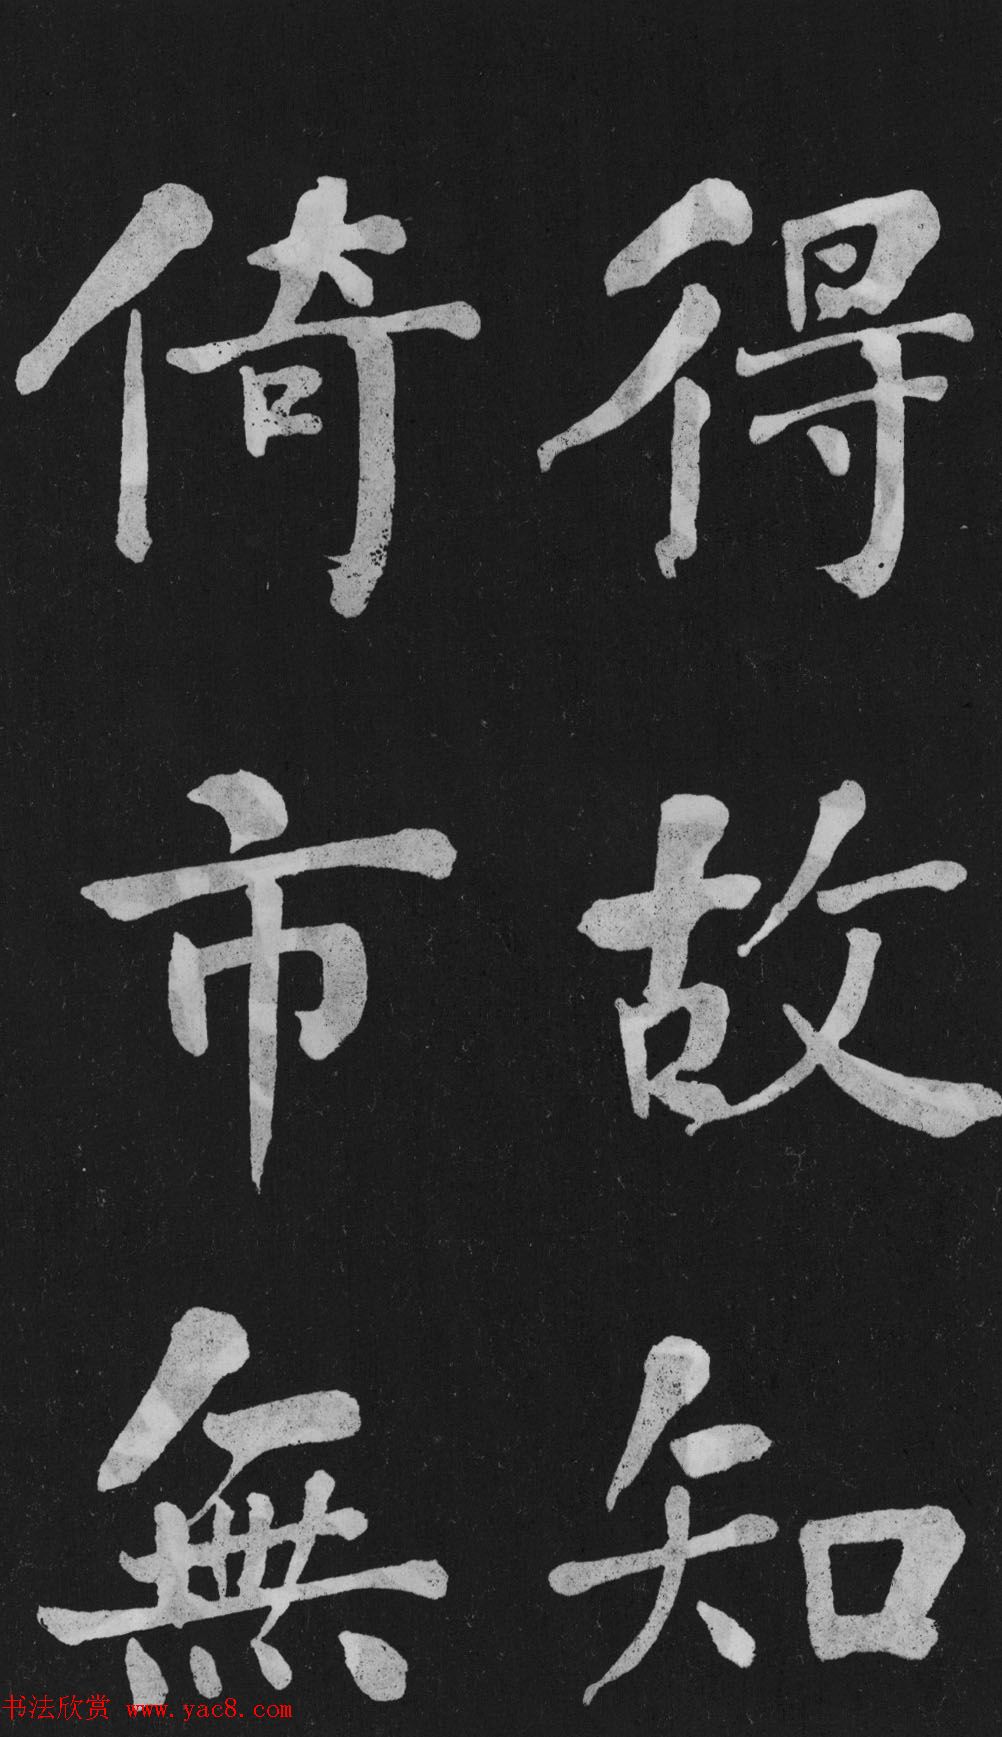 得故知
倚市無
书法欣赏 www.yac8.com